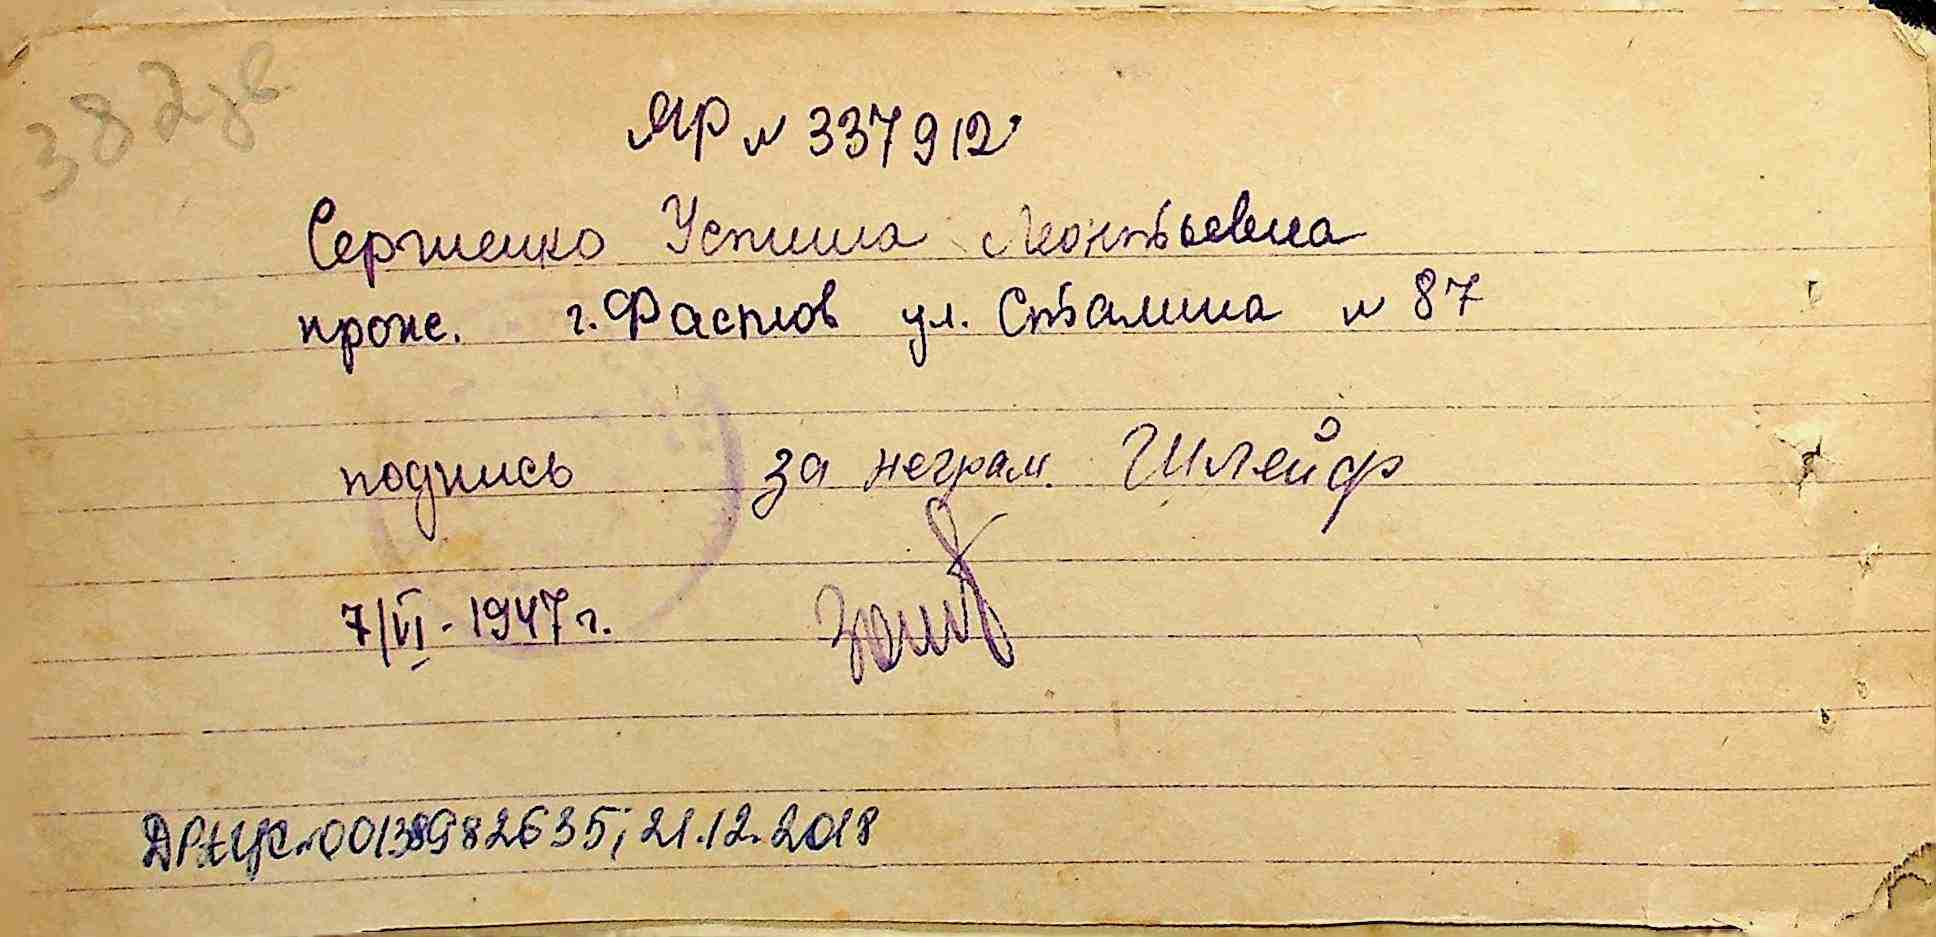 382 зв.
ЯР № 337912
Сергиенко Устина Леонтьевна
прож. г. Фастов ул. Сталина № 87
подпись за неграм. Шлейф
7/VI - 1947 г.
00138982635; 21.12.2018